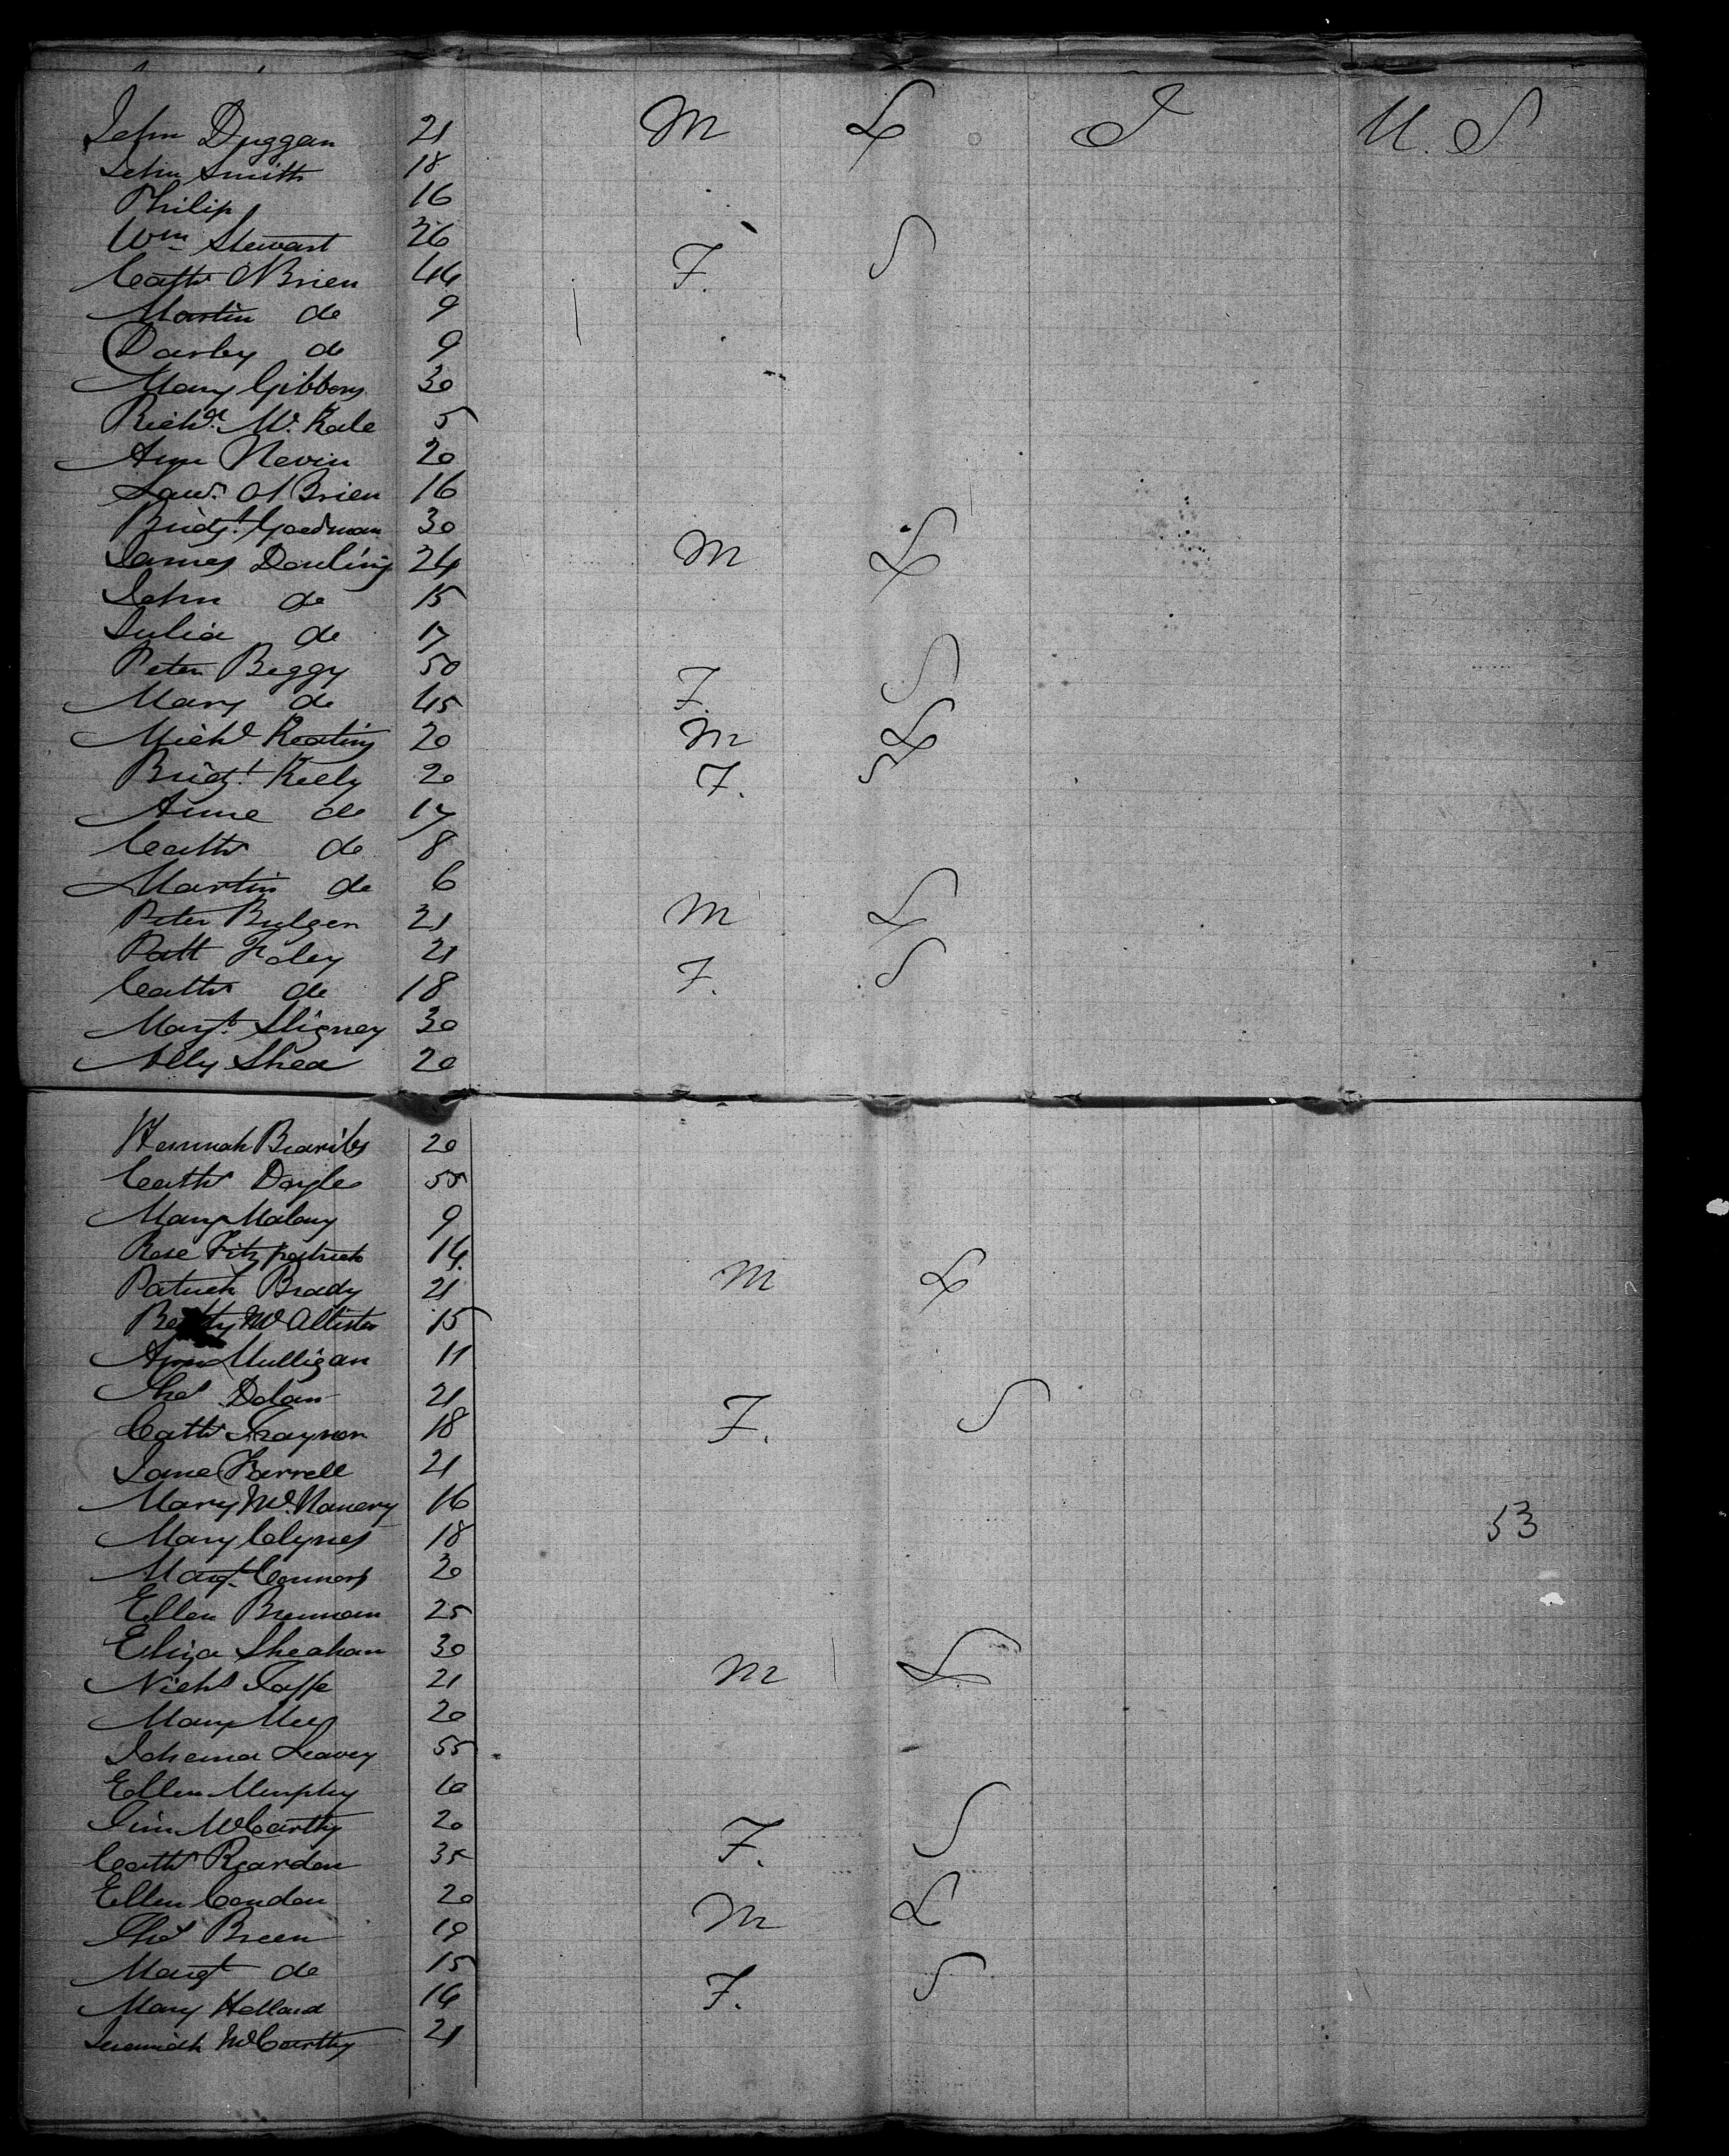 John Duggan 21 M L I U.S
John Smith 18
Philip 16
Wm Stewart 26
Cathe O'Brien 44 F. S
Martin do 9
Darby do 9
Mary Gibbons 30
Richd. Mc Kale 5
Ann Nevin 20
Lawr. O'Brien 16
Bridgt. Goodman 30
James Dowling 24 M L
John do 15
Julia do 17
Peter Beggy 50
Mary do 45 F. S
Michl Keating 20 M L
Bridgt Kiely 20 F. S
Anne do 17
Cathe do 8
Martin do 6
Peter Bulger 21 M L
Patt Foley 21
Cathe do 18 F. S
Margt. Sligney 30
Ally Shea 20
Hannah 20
Cathe Doyle 55
Mary Malony 9
Rose Fitzpatrick 14
Patrick Brady 21 M L
Betty McAllister 15
Ann Mulligan 11
Thos Dolan 21
Cathe Traynor 18 F. S
Jane Farrell 21
Mary Mc. 16 53
Mary Clynes 18
Margt. Connors 20
Ellen Brennan 25
Eliza Sheahan 30
Nichs Taffe 21 M L
Mary 20
Johanna Leavey 55
Ellen Murphy 10
Jim McCarthy 20
Cathe Reardon 35 F. S
Ellen Condon 20
Thos Breen 19 M L
Margt do 15
Mary Holland 14 F. S
Jeremiah McCarthy 21